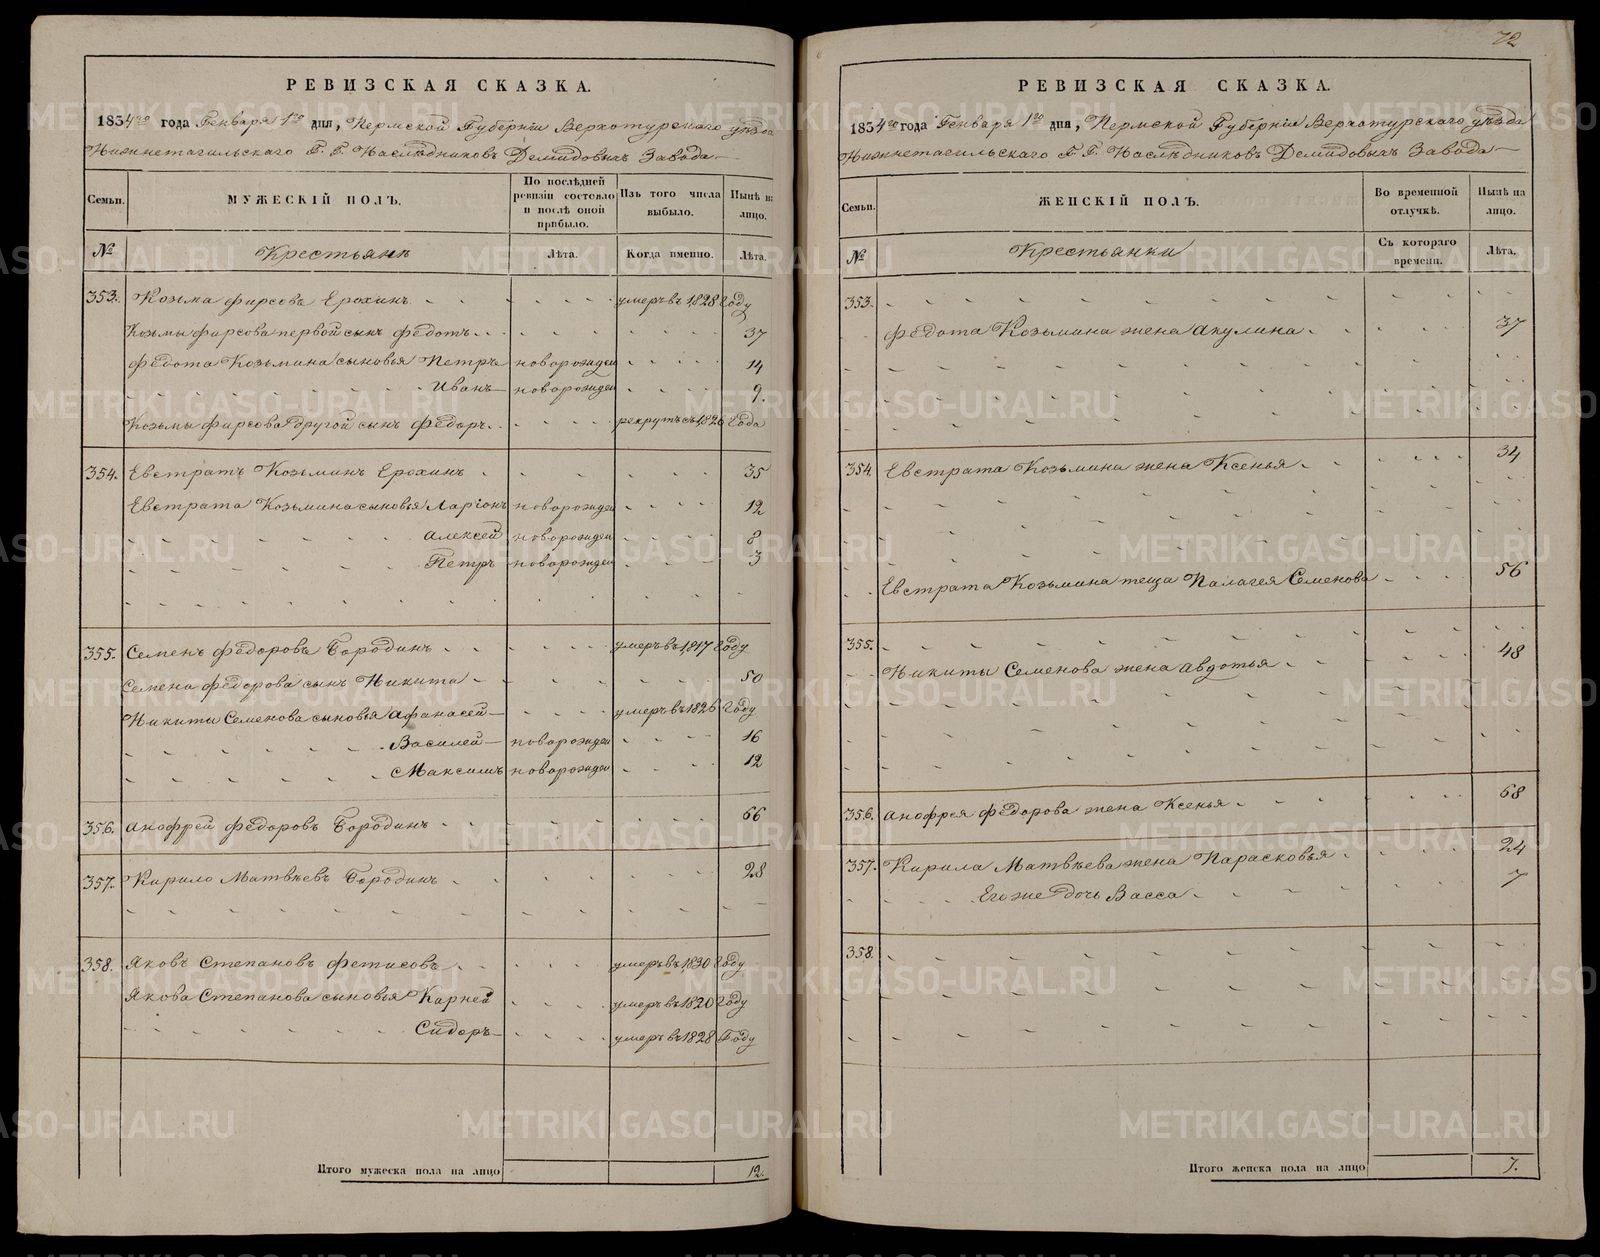 РЕВИЗСКАЯ СКАЗКА.
1834го года Генваря 1го дня, Пермской Губерніи Верхотурскаго уѣзда
Нижнетагильскаго Г. Г. Наслѣдниковъ Демидовыхъ Завода
Семьи. МУЖЕСКІЙ ПОЛЪ. По послѣдней ревизіи состояло и послѣ оной прибыло. Изъ того числа выбыло. Нынѣ на лицо.
№ Крестьянъ Лѣта. Когда именно. Лѣта.
353. Козьма Фирсовъ Ерохинъ умеръ въ 1828 году
Козьмы Фирсова первой сынъ Федотъ 37
Федота Козьмина сыновья Петръ новорожден 14
Иванъ новорожден 9.
Козьмы Фирсова другой сынъ Федоръ рекрутъ съ 1826 года
354. Евстратъ Козьминъ Ерохинъ 35
Евстрата Козьмина сыновья Ларіонъ новорожден 12
Алексей новорожден 8
Петръ новорожден 3
355. Семенъ Федоровъ Бородинъ умеръ въ 1817 году
Семена Федорова сынъ Никита 50
Никиты Семенова сыновья Афанасей умеръ въ 1826 году
Василей новорожден 16
Максимъ новорожден 12
356. Анофрей Федоровъ Бородинъ 66
357. Кирило Матвѣевъ Бородинъ 28
358. Яковъ Степановъ Фетисовъ умеръ въ 1830 году
Якова Степанова сыновья Карней умеръ въ 1820 году
Сидоръ умеръ въ 1828 году
Итого мужеска пола на лицо 12.
72
РЕВИЗСКАЯ СКАЗКА.
1834го года Генваря 1го дня, Пермской Губерніи Верхотурскаго уѣзда
Нижнетагильскаго Г. Г. Наслѣдниковъ Демидовыхъ Завода
Семьи. ЖЕНСКІЙ ПОЛЪ. Во временной отлучкѣ. Нынѣ на лицо.
№ Крестьянки Съ котораго времени. Лѣта.
353.
Федота Козьмина жена Акулина 37
354. Евстрата Козьмина жена Ксенья 34
Евстрата Козьмина теща Палагея Семенова 56
355.
Никиты Семенова жена Авдотья 48
356. Анофрея Федорова жена Ксенья 68
357. Кирила Матвѣева жена Парасковья 24
Его же дочь Васса 7
358.
Итого женска пола на лицо 7.
METRIKI.GASO-URAL.RU